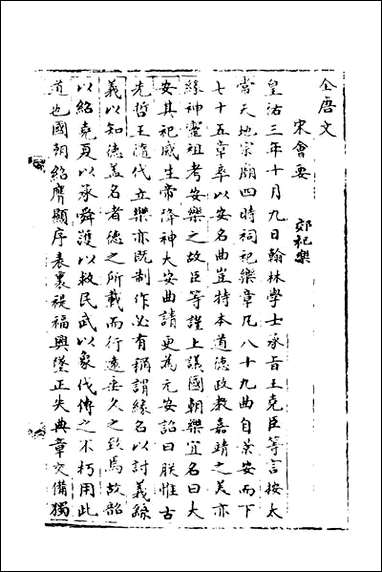 全唐文
宋會要　郊祀樂
皇祐三年十月九日翰林學士承旨王堯臣等言按太
常天地宗廟四時祠祀樂章凡八十九曲自景安而下
七十五章率以安名曲豈特本道德政教嘉靖之美亦
緣神靈祖考安樂之故臣等謹上議國朝樂宜名曰大
安其祀感生帝降神大安曲請更為元安詔曰朕惟古
先哲王隨代立樂亦既制作必有稱謂緣名以討義繇
義以知德蓋名者德之所載而行遠垂久之致焉故韶
以紹堯夏以承舜濩以救民武以象代傳之不朽用此
道也國朝紹膺顯序表裏禔福興墜正失典章交備獨